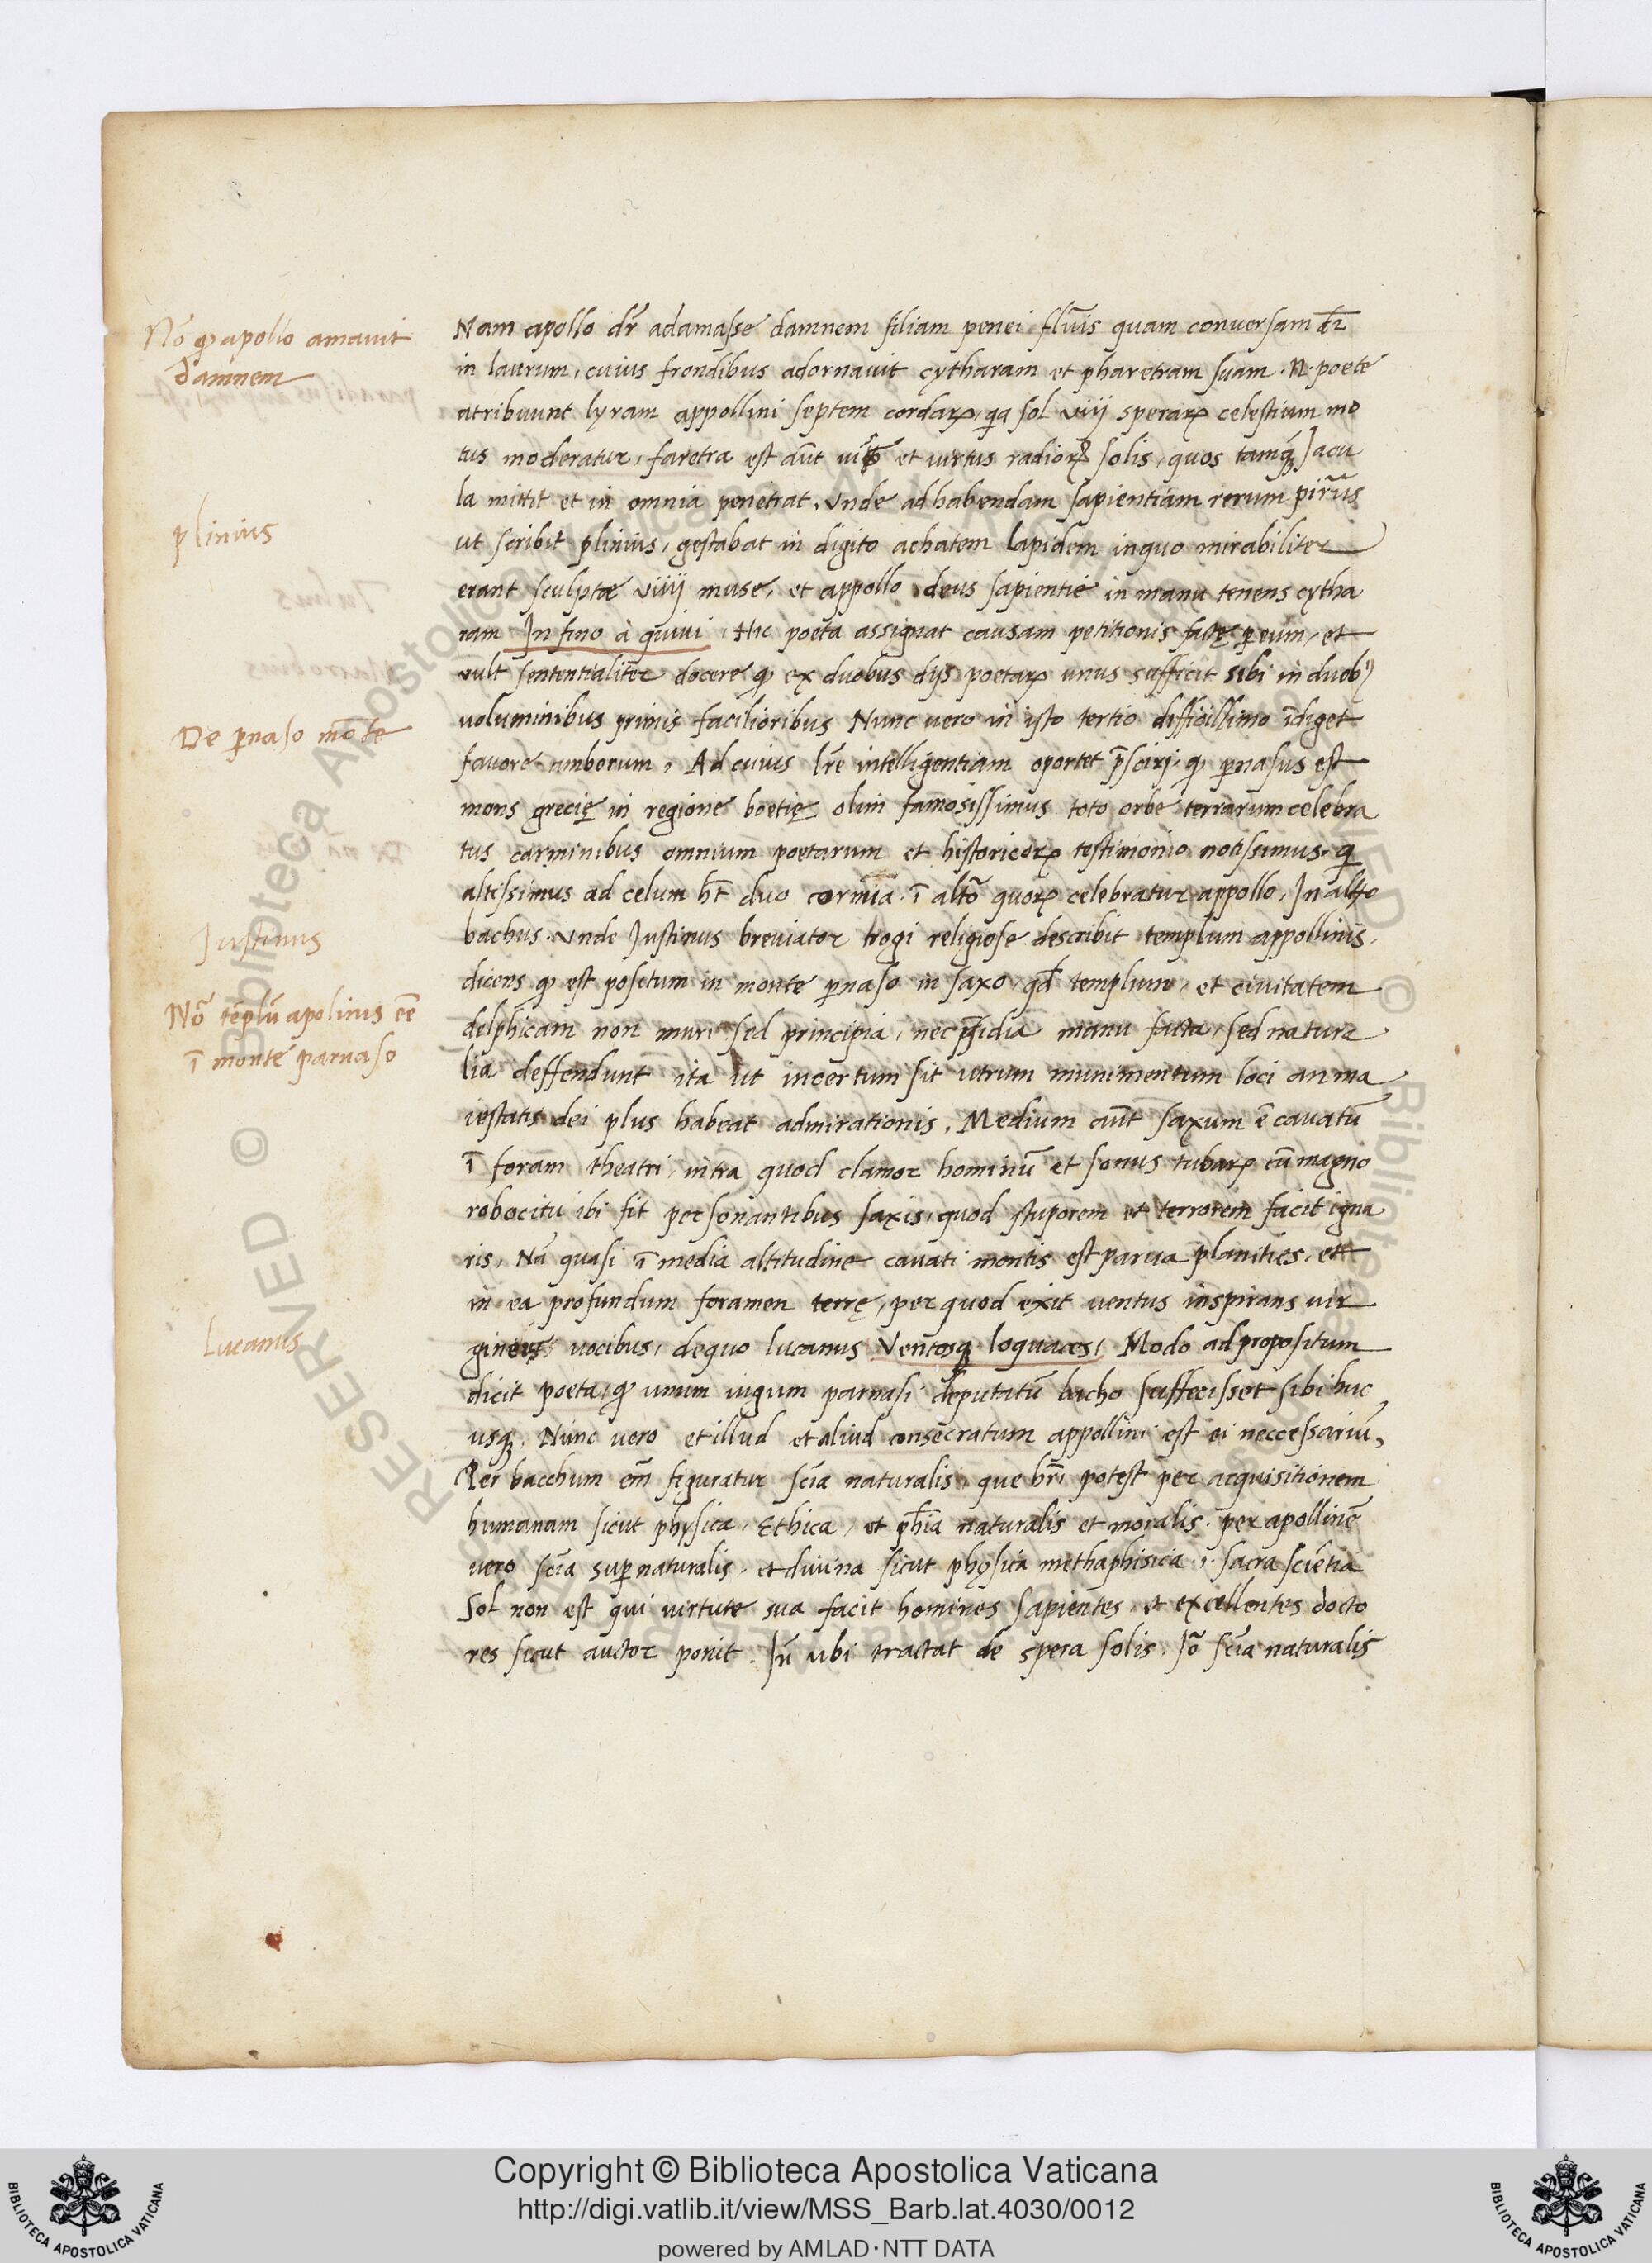 Nō ꝙ apollo amauit
damnem
plinius
De ꝑnaso mōte
Justinus
Nō tēplū apolinis eē
ī monte parnaso
Lucanus
Nam apollo dr̄ adamasse damnem filiam penei flūis quam conuersam
in laurum, cuius frondibus adornauit cytharam et pharetram suam. N. poete
atribuunt lyram appollini septem cordaꝝ, qa sol viiij speraꝝ celestium mo
tus moderatur, faretra est aūt et uirtus radioꝝ solis, quos tamꝗ Jacu
la mittit et in omnia penetrat. Vnde ad habendam sapientiam rerum pirrus
ut scribit plinius, gestabat in digito achatem lapidem inquo mirabiliter
erant sculptæ viiij muse, et appollo deus sapientie in manu tenens cytha
ram Jn fino à quiui. Hic poeta assignat causam petitionis factę ꝑ eum, et
vult sententialiter docere ꝙ ex duobus dijs poetaꝝ unus sufficit sibi in duobꝰ
voluminibus primis facilioribus Nunc vero in isto tertio difficillimo īdiget
fauore amborum, Ad cuius lr̄e intelligentiam oportet p̄scirj. ꝙ ꝑnasus est
mons grecię in regione boetię olim famosissimus toto orbe terrarum celebra
tus carminibus omnium poetarum et historicoꝝ testimonio notissimus. q
altissimus ad celum h̄t duo cornua. ī altō quoꝝ celebratur appollo, Jn alto
bachus. Vnde Justinus breuiator trogi religiose describit templum appollinis.
dicens ꝙ est positum in monte ꝑnaso in saxo, qd templum, et ciuitatem
delphicam non muri sed principia, nec p̄sidia manu facta, sed natura
lia deffendunt ita ut incertum sit utrum munimentum loci an ma
iestatis dei plus habeat admirationis. Medium aūt saxum ē cauatū
ī foram theatri. intra quod clamor hominū et sonus tubaꝝ cū magno
robocitu ibi fit personantibus saxis, quod stuporem et terrorem facit igna
ris, Nā quasi ī media altitudine cauati montis est parua planities, et
in ea profundum foramen terrę, per quod exit uentus inspirans uir
gineis uocibus, dequo lucanus Ventosꝗ loquaces, Modo ad propositum
dicit poeta, ꝙ unum iugum parnasi deputatū bacho suffecisset sibi huc
usꝗ, Nunc vero et illud et aliud consecratum appollini est ei neccessariū,
Per bacchum em̄ figuratur scīa naturalis, que hr̄i potest per acquisitionem
humanam sicut physica, Ethica, et ph̄ia naturalis et moralis. per apollinē
vero scīa suꝑnaturalis, et diuina sicut physica methaphisicia, .i. sacra scientia
Sol non est qui uirtute sua facit homines sapientes et excellentes docto
res sicut auctor ponit. Jn̄ ubi tractat de spera solis. Jō scīa naturalis
Copyright © Biblioteca Apostolica Vaticana
http://digi.vatlib.it/view/MSS_Barb.lat.4030/0012
powered by AMLAD·NTT DATA
BIBLIOTECA APOSTOLICA VATICANA
BIBLIOTECA APOSTOLICA VATICANA